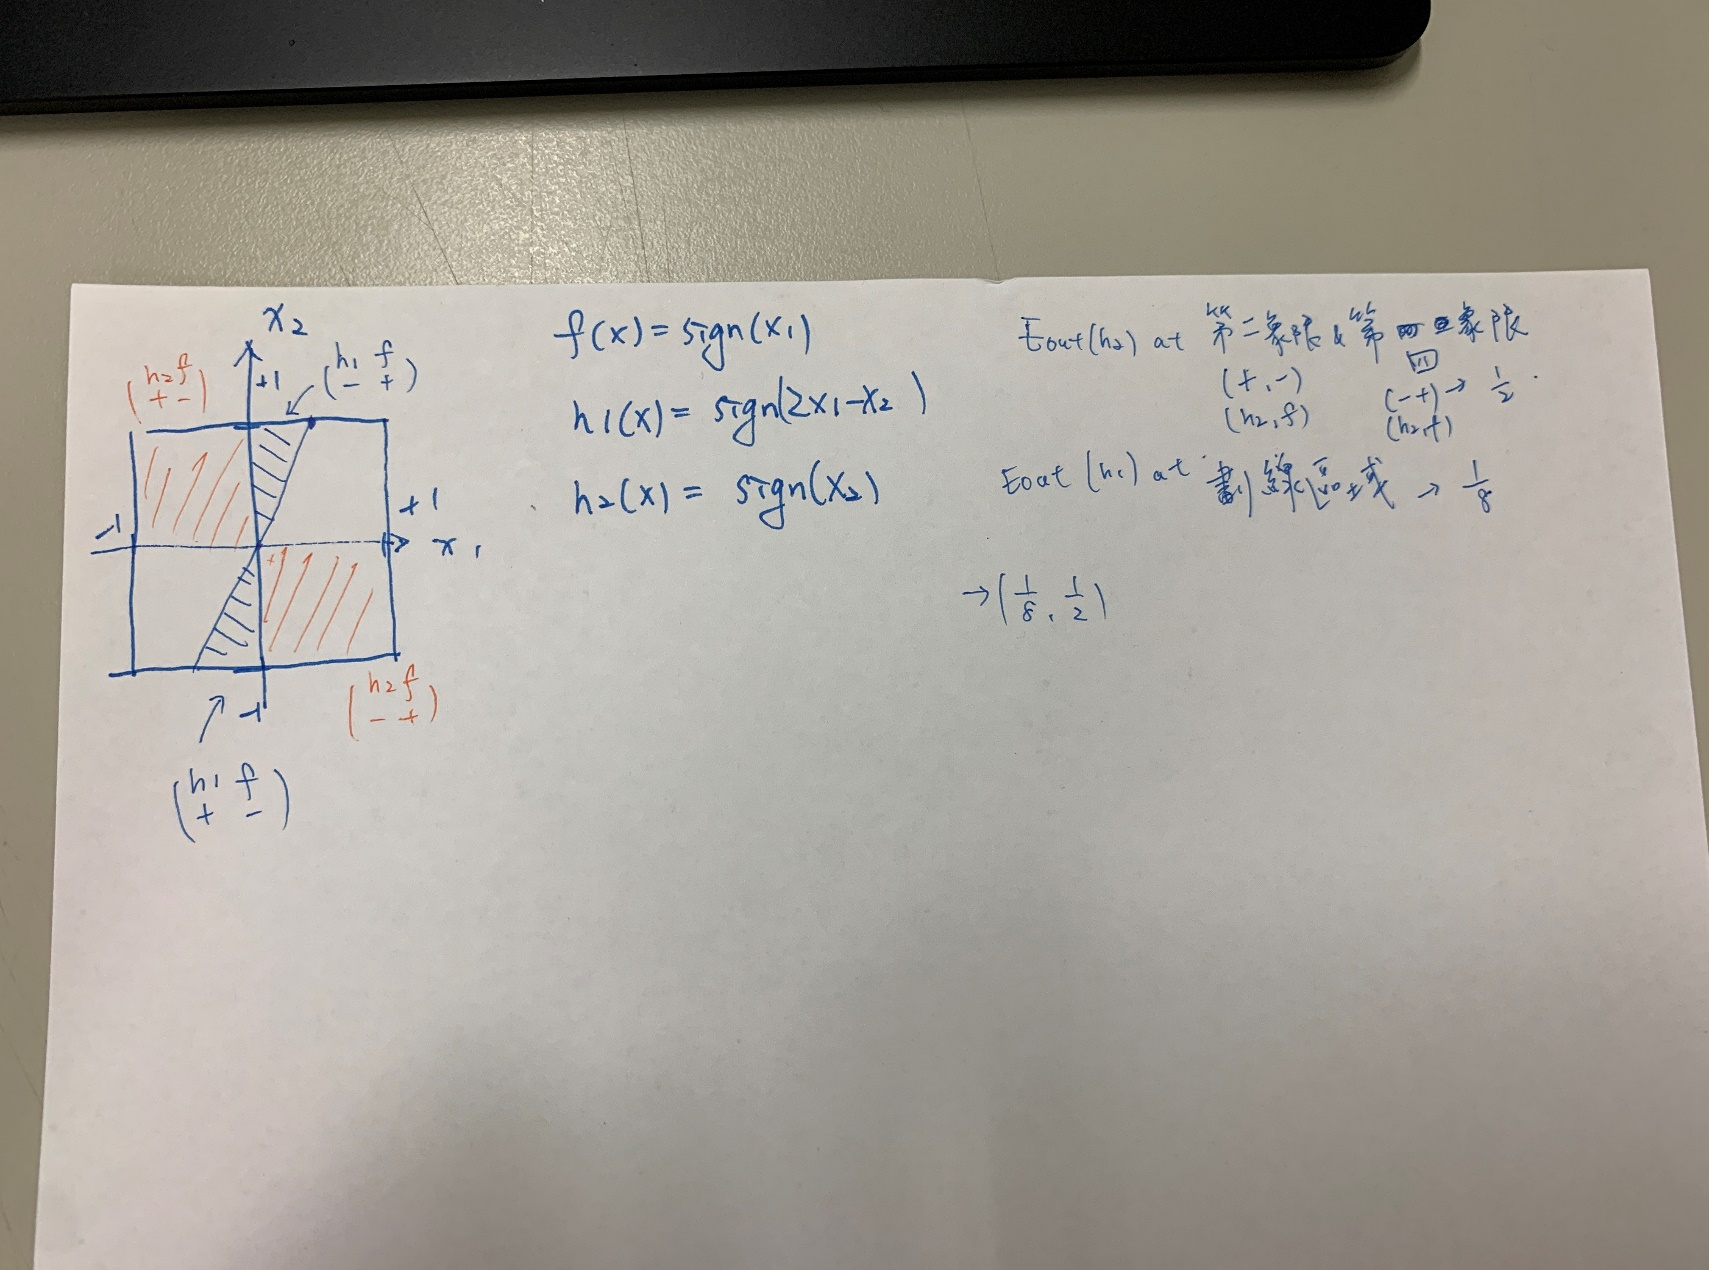 x2
+1
(h1 f
- +)
(h2 f
+ -)
-1
+1
x1
-1
(h2 f
- +)
(h1 f
+ -)
f(x) = sign(x1)
h1(x) = sign(2x1-x2)
h2(x) = sign(x2)
Eout(h2) at 第二象限 & 第四象限
(+,-) (-+) → 1/2
(h2,f) (h2,f)
Eout (h1) at 劃線區域 → 1/8
→ (1/8, 1/2)